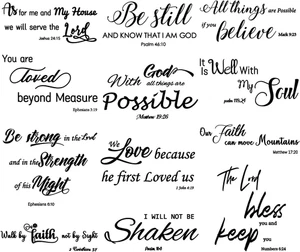 As for me and My House
we will serve the Lord
Joshua 24:15
Be still
AND KNOW THAT I AM GOD
Psalm 46:10
All things are Possible
if you
believe
Mark 9:23
You are
loved
beyond Measure
Ephesians 3:19
With God
all things are
Possible
Matthew 19:26
It Is Well With
My
Soul
Be strong in the Lord
and in the Strength
of his Might
Ephesians 6:10
We Love because
he first Loved us
1 John 4:19
Our Faith
can move Mountains
Matthew 17:20
Walk by faith, not by Sight
2 Corinthians 5:7
I WILL NOT BE
Shaken
The Lord
bless
you and
keep you
Numbers 6:24